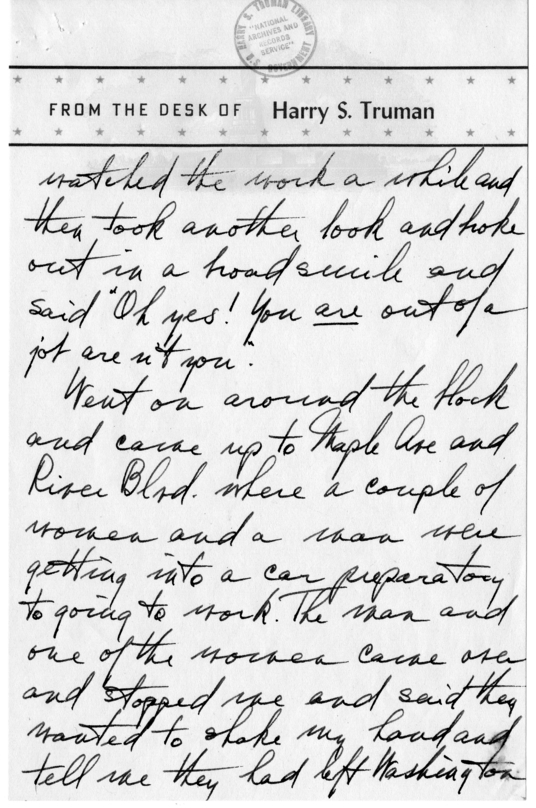 HARRY S. TRUMAN LIBRARY
"NATIONAL
ARCHIVES AND
RECORDS
SERVICE"
U.S. GOVERNMENT
FROM THE DESK OF Harry S. Truman
watched the work a while and
then took another look and broke
out in a broad smile and
said "Oh yes! You are out of a
job are n't you".
Went on around the block
and came up to Maple Ave and
River Blvd. where a couple of
women and a man were
getting into a car preparatory
to going to work. The man and
one of the women came over
and stopped me and said they
wanted to shake my hand and
tell me they had left Washington